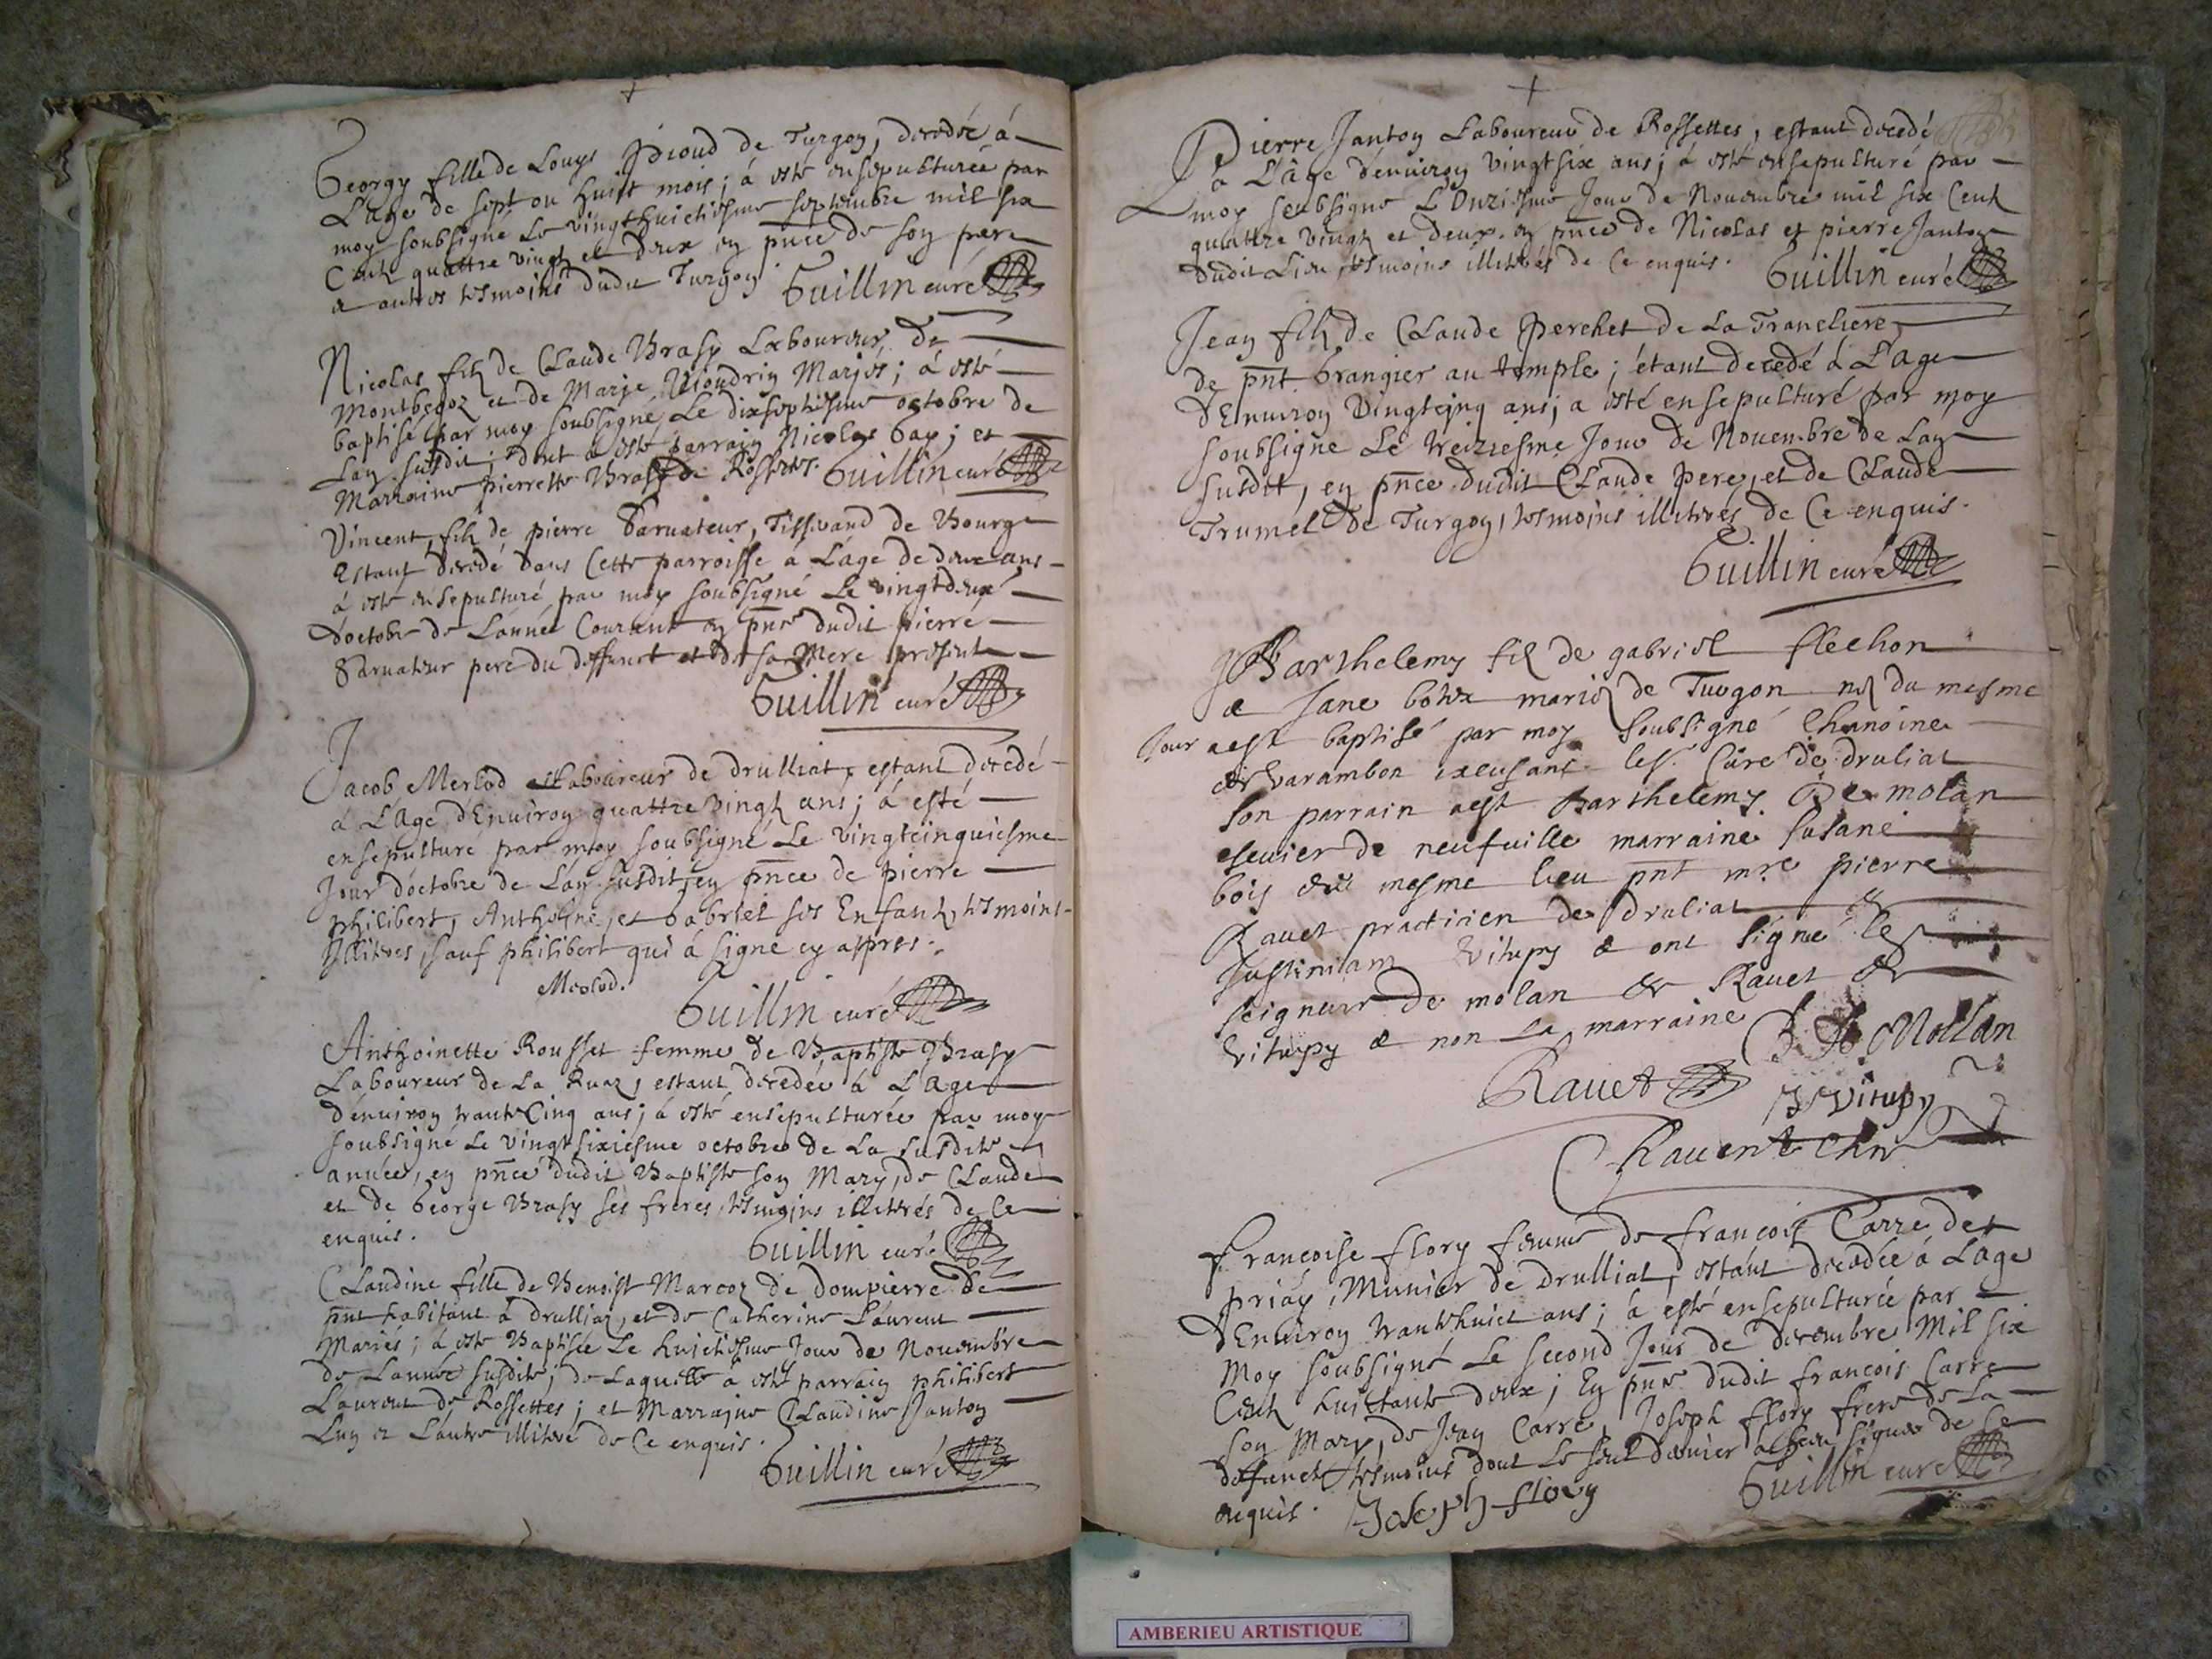 Georgy fille de Louys Pioud de Turgoy, decedée á
L'age de sept ou huict mois; á esté ensepulturée par
moy soubsigné Le vingthuictiesme septembre mil six
Centz quattre vingt et deux en pnce de son pere
et autres tesmoins dudit Turgoy. Guillin curé
Nicolas filz de Claude Brasy Laboureur de
Montbegoz et de Marie Mariés; á esté
baptisé par moy soubsigné Le dixseptiesme octobre de
Lan susdit; dont a esté parrain Nicolas Gay; et
Marraine pierrette Brasy de Rossettes. Guillin curé
Vincent filz de pierre Tissirand de Bourg
Estant decedé dans Cette parroisse á L'age de deux ans
á esté ensepulturé par moy soubsigné Le vingtdeux
d'octobre de L'année Courante en pnce dudit pierre
pere du deffunct et de sa Mere presente
Guillin curé
Jacob Merlod Laboureur de drulliat, estant decedé
á L'Age d'Enuiron quattre vingtz ans; á esté
ensepulturé par moy soubsigné Le vingtcinquiesme
Jour d'octobre de Lan susdit, en pnce de pierre
philibert, Anthoine, et Gabriel ses Enfantz, tesmoins
Illitres, sauf philibert qui á signé cy appres.
Merlod.
Guillin curé
Anthoinette Rousset femme de Baptiste Brasy
Laboureur de La Ruaz, estant decedée á L'Age
d'enuiron trante Cinq ans; á esté ensepulturée par moy
soubsigné Le vingtsixiesme octobre de La susdite
année, en pnce dudit Baptiste son Mary, de Claude
et de George Brasy ses freres, tesmoins illiterés de Ce
enquis.
Guillin curé
Claudine fille de Benoist Marcoz de dompierre de
pnt habitant á drulliaz, et de Catherine Laurent
Mariés; á esté Baptisée Le huictiesme Jour de Nouembre
de L'année susdite; de Laquelle á esté parrain philibert
Laurent de Rossettes; et Marraine Claudine Janton
Lun et L'autre illiteré de Ce enquis.
Guillin curé
Pierre Janton Laboureur de Rossettes, estant decedé
á L'âge d'enuiron vingtsix ans; á esté ensepulturé par
moy soubsigné L'Onziesme Jour de Nouembre mil six Centz
quattre vingtz et deux en pnce de Nicolas et pierre Janton
dudit Lieu, tesmoins illiterés de Ce enquis. Guillin curé
Jean filz de Claude Perchet de La Trancliere
de pnt Grangier au temple; étant decedé á L'age
d'Enuiron Vingtcinq ans; a esté ensepulturé par moy
soubsigné Le treiziesme Jour de Nouembre de Lan
susdit, en pnce dudit Claude pere, et de Claude
Trumel de Turgoy, tesmoins illiterés de Ce enquis.
Guillin curé
Barthelemy fil de gabriel flechon
& Jane mariez de Turgon nez du mesme
Jour aest baptisé par moy Soubsigné Chanoine
de Varambon excusant Curé de druliat
Son parrain aest Barthelemy De molan
eseuier de neufuille marraine susane
bois du mesme lieu pnt mre pierre
Rauet practicien de druliat &
Justiniam Vitupy & ont signé le
seigneur de molan & Rauet &
Vitupy & non la marraine
B De Mollan
Rauet
J Vitupy
Francoise flory femme de francois Carre de
priay, Munier de Drulliat, estant decedée á L'áge
d'Enuiron trantehuict ans; á esté ensepulturée par
Moy soubsigné Le second Jour de decembre Mil six
Centz huictante deux; En pnce dudit francois Carre
son Mary, de Jean Carre, Joseph flory frere de La
deffuncte tesmoins dont Le seul dernier á signer de Ce
enquis. Joseph flory
Guillin curé
AMBERIEU ARTISTIQUE